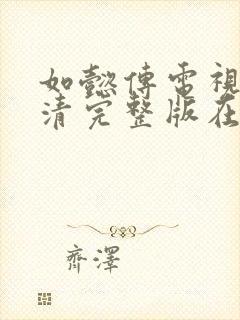 如懿傳電視
清完整版在
齊澤